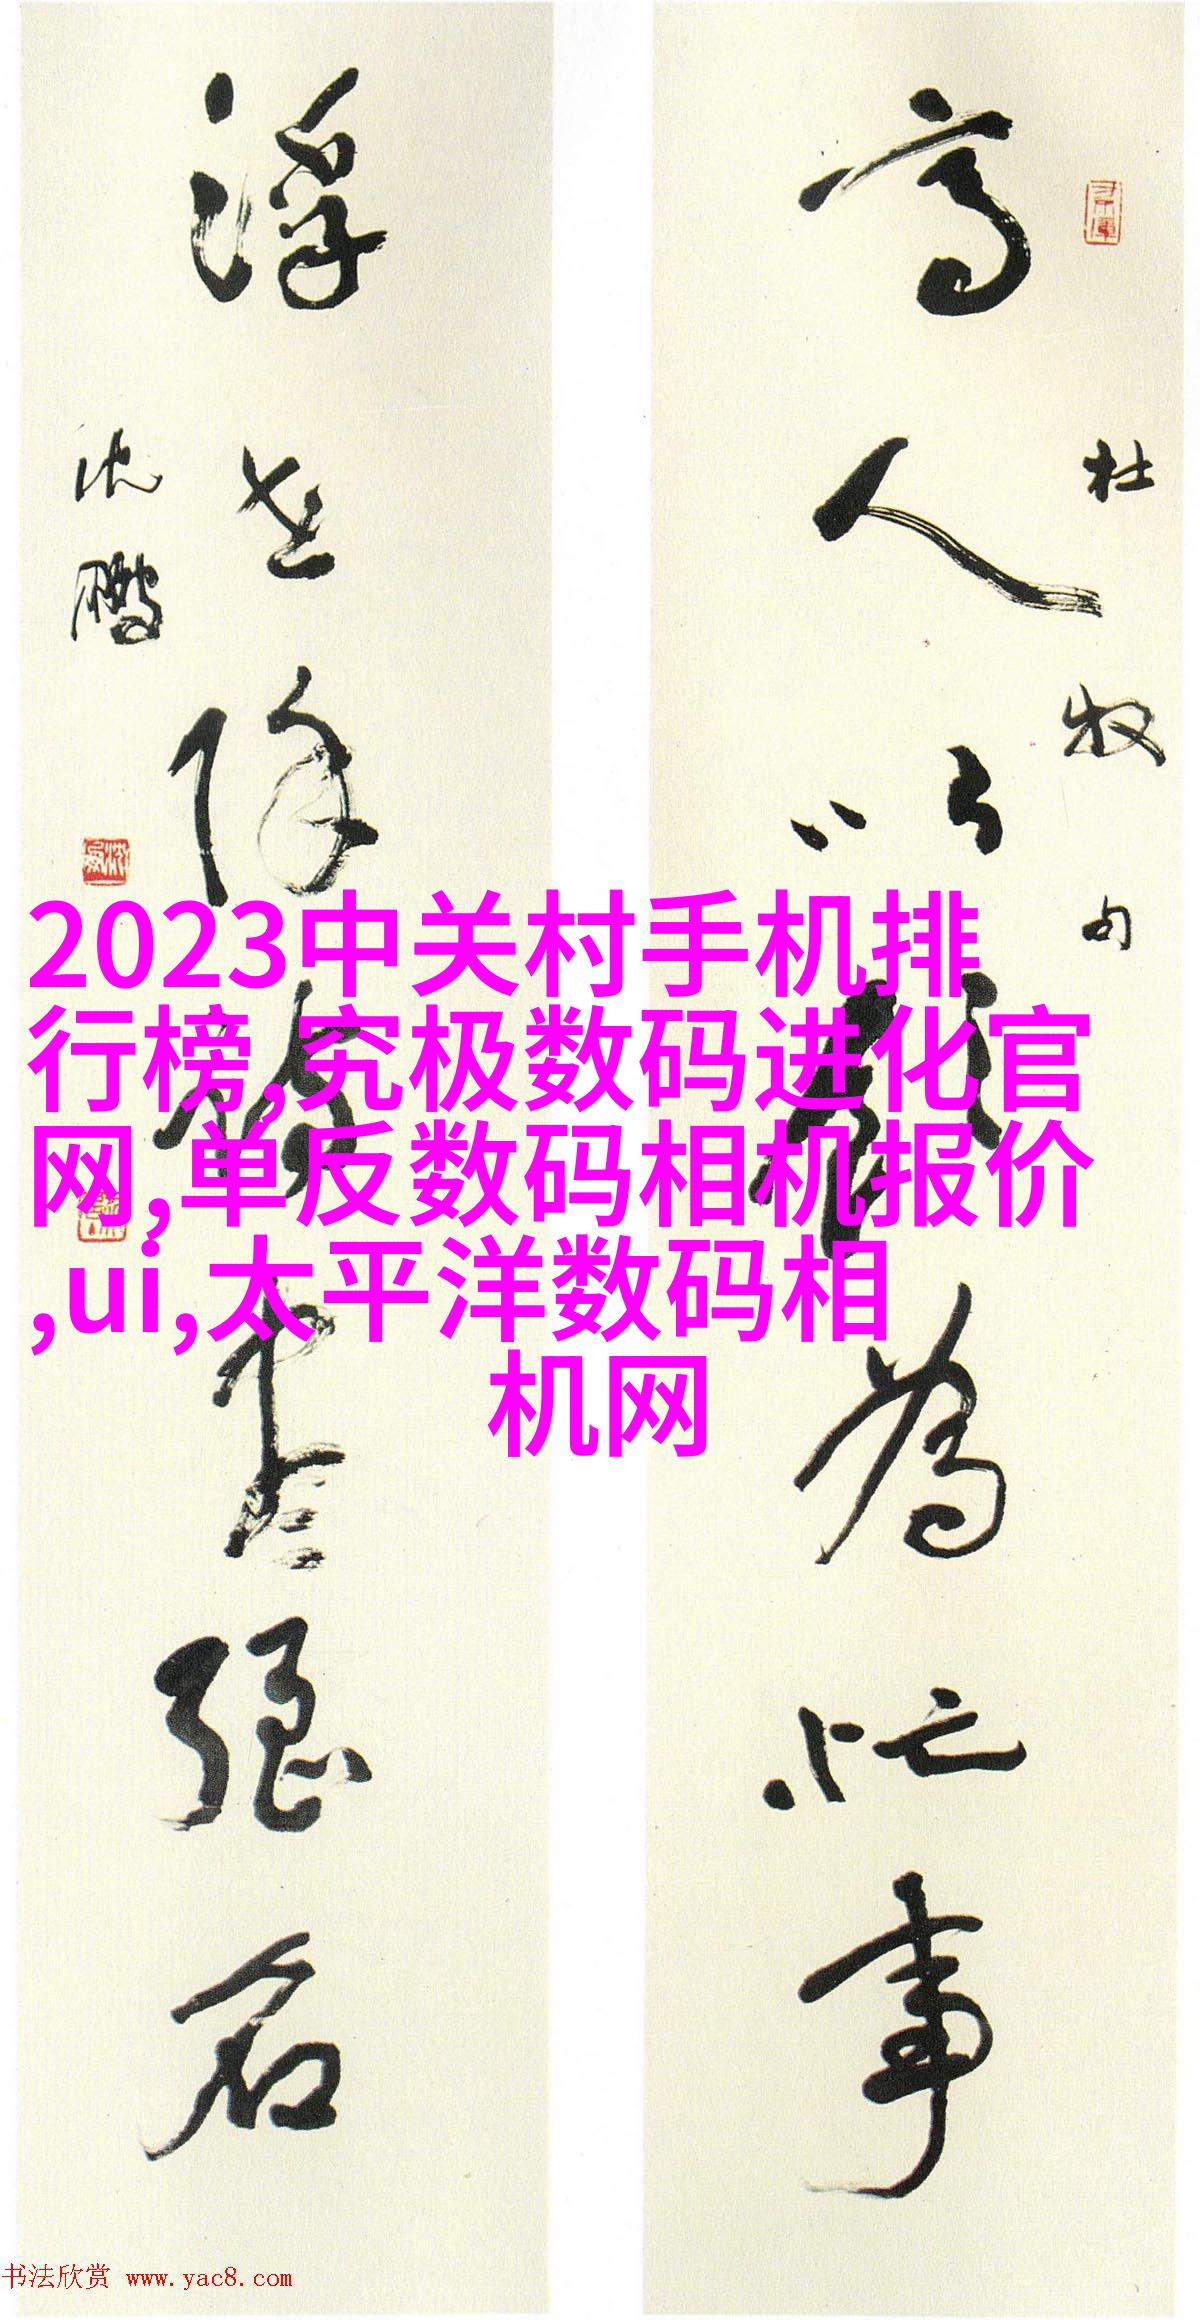 杜牧句
高人以為忙事
浮世除盡強名
沈鵬
2023中关村手机排
行榜,究极数码进化官
网,单反数码相机报价
,ui,太平洋数码相
机网
书法欣赏 www.yac8.com